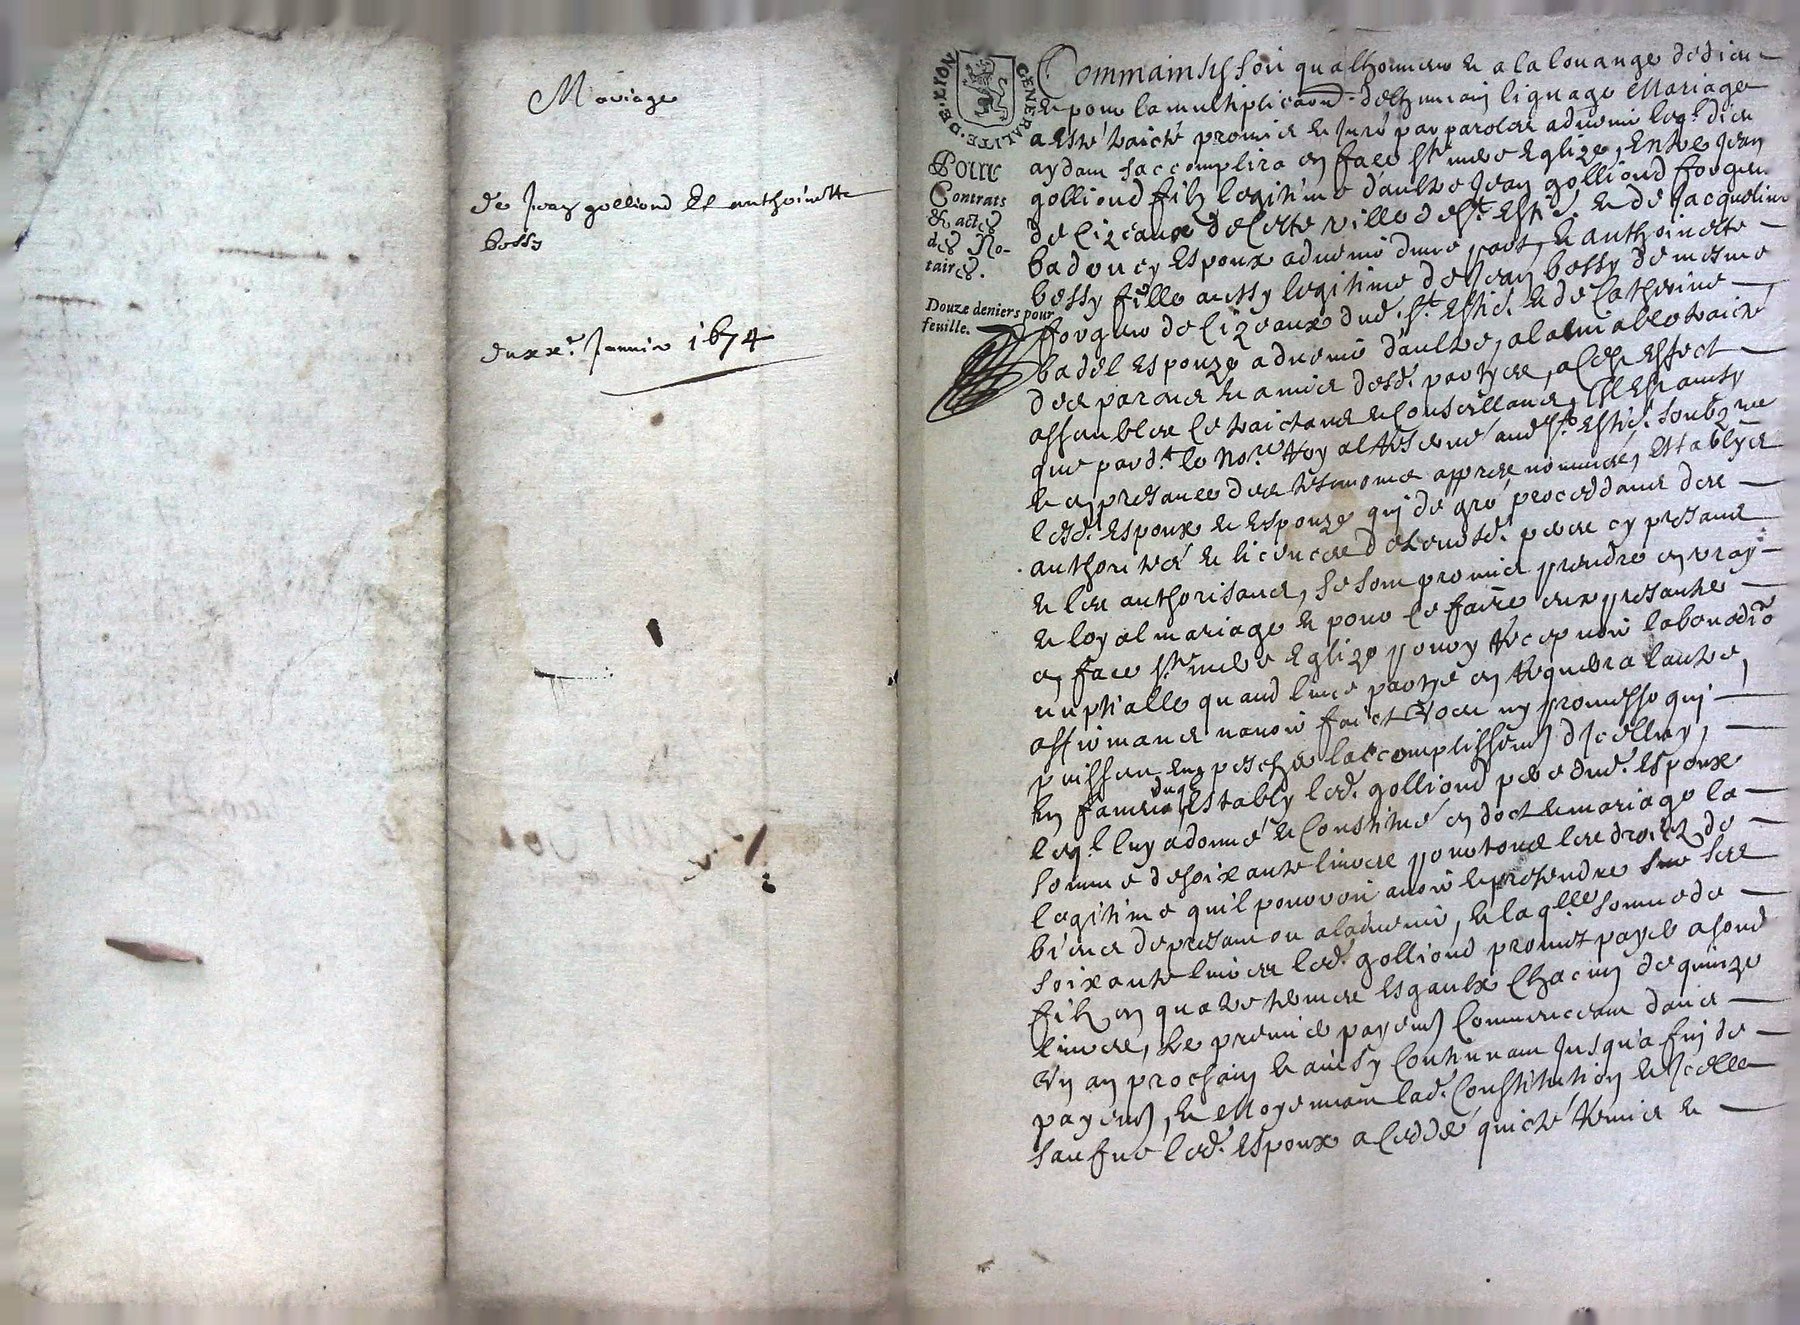 Mariage
de Jean golliond Et anthoinette
bessy
du xxe. Janvier 1674
GENERALITE·DE·LYON
Pour
Contrats
& actes
des No-
taires.
Douze deniers pour
feuille.
Comme ainsy soit qua lhonneur et a la louange de dieu
et pour la multiplicaon de lhumain lignage Mariage
a esté traicté promis et juré par paroles advenir leql. dieu
aydant saccomplira en face ste. mere Eglize, Entre Jean
golliond filz legitime d'aultre Jean golliond forgeur
de Cizeaux de Cette ville de St. Estie. et de Jacqueline
badoucy Espoux advenir dune part, et anthoinette
bessy fille aussy legitime de Jean bessy de mesme
forgeur de Cizeaux dud. St. Estie. et de Catherine
badel Espouze advenir d'aultre, a lamiable traicté
des parans et amis desd. partyes, a Cest Effect
assembles Ce traictans et Conseillans, Il Est ainsy
que pardt. le nore. Roy al Reservé aud. St. Estie. soubzne
et en presance des tesmoins appres nommés, Establys
lesd. Espoux et Espouze qui de gré proceddans des
authorités et licences de leursd. peres cy presans
et les authorisans, se sont promis prendre en vray
et loyal mariage et pour Ce faire eux presanter
en face ste. mere Eglize pour y Recepvoir la benedion
nuptialle quand lune partye en Requerra lautre,
affirmans navoir faict voeu ny promesse qui
puissent Empescher laccomplissemt. dicelluy,
En faveur duql Estably led. golliond pere dud. Espoux
leql. luy a donné et Constitué en doct et mariage la
somme de soixante livres pour tous les droictz de
legitime quil pourroit avoir et pretendre sur ses
biens de presant ou a ladvenir, et laqlle somme de
soixante livres led. golliond promet payer a sond
filz en quatre termes Esgaulx Chacun de quinze
livres, Le premier payemt. Commenceant dans
Un an prochain et ainsy Continuant jusqu'a fin de
payemt., et Moyennant lad. Constitution et Icelle
sauf led. Espoux a Ceddé quicté Remis et